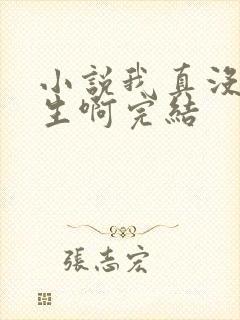 小說我真没
生啊完結
張志宏